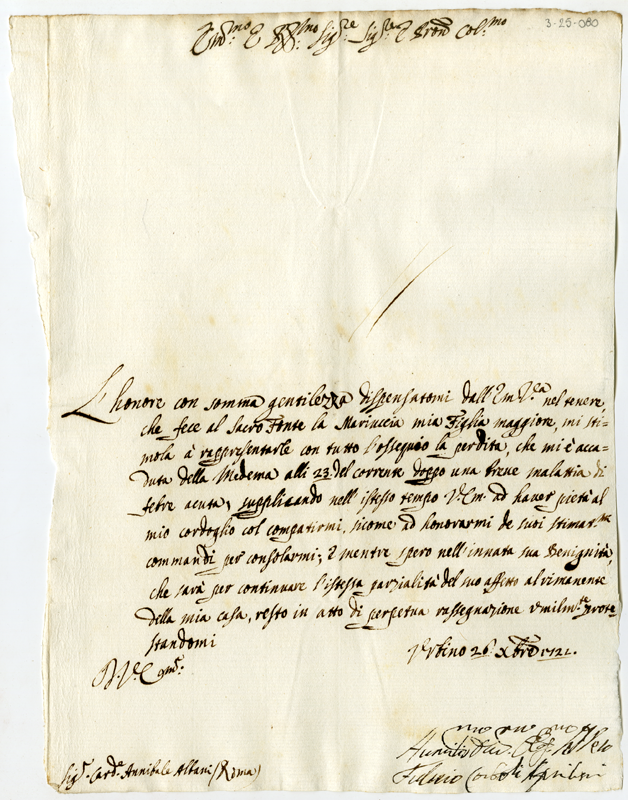 3-25-080
Em.mo E R.mo Sig.re Sig.re E Pron Col.mo
L'honore con somma gentilezza dispensatomi dall'Em V.ra nel tenere,
che fece al Sacro Fonte la Mariuccia mia Figlia maggiore, mi sti-
mola à rappresentarle con tutto l'ossequio la perdita, che mi è acca-
duta della Medema alli 23 del corrente doppo una breve malattia di
febre acuta, supplicando nell'istesso tempo V. Em. ad haver pietà al
mio cordoglio col compatirmi, sicome ad honorarmi de suoi stimat.mi
commandi per consolarmi; E mentre spero nell'innata sua Benignità,
che sarà per continuare l'istessa parzialità del suo affetto al rimanente
della mia casa, resto in atto di perpetua rassegnazione umilm.te prote
standomi
Urbino 26 Xbre 1721.
D. V. Em.
Fulvio
Sig.r Card.e Annibale Albani (Roma)